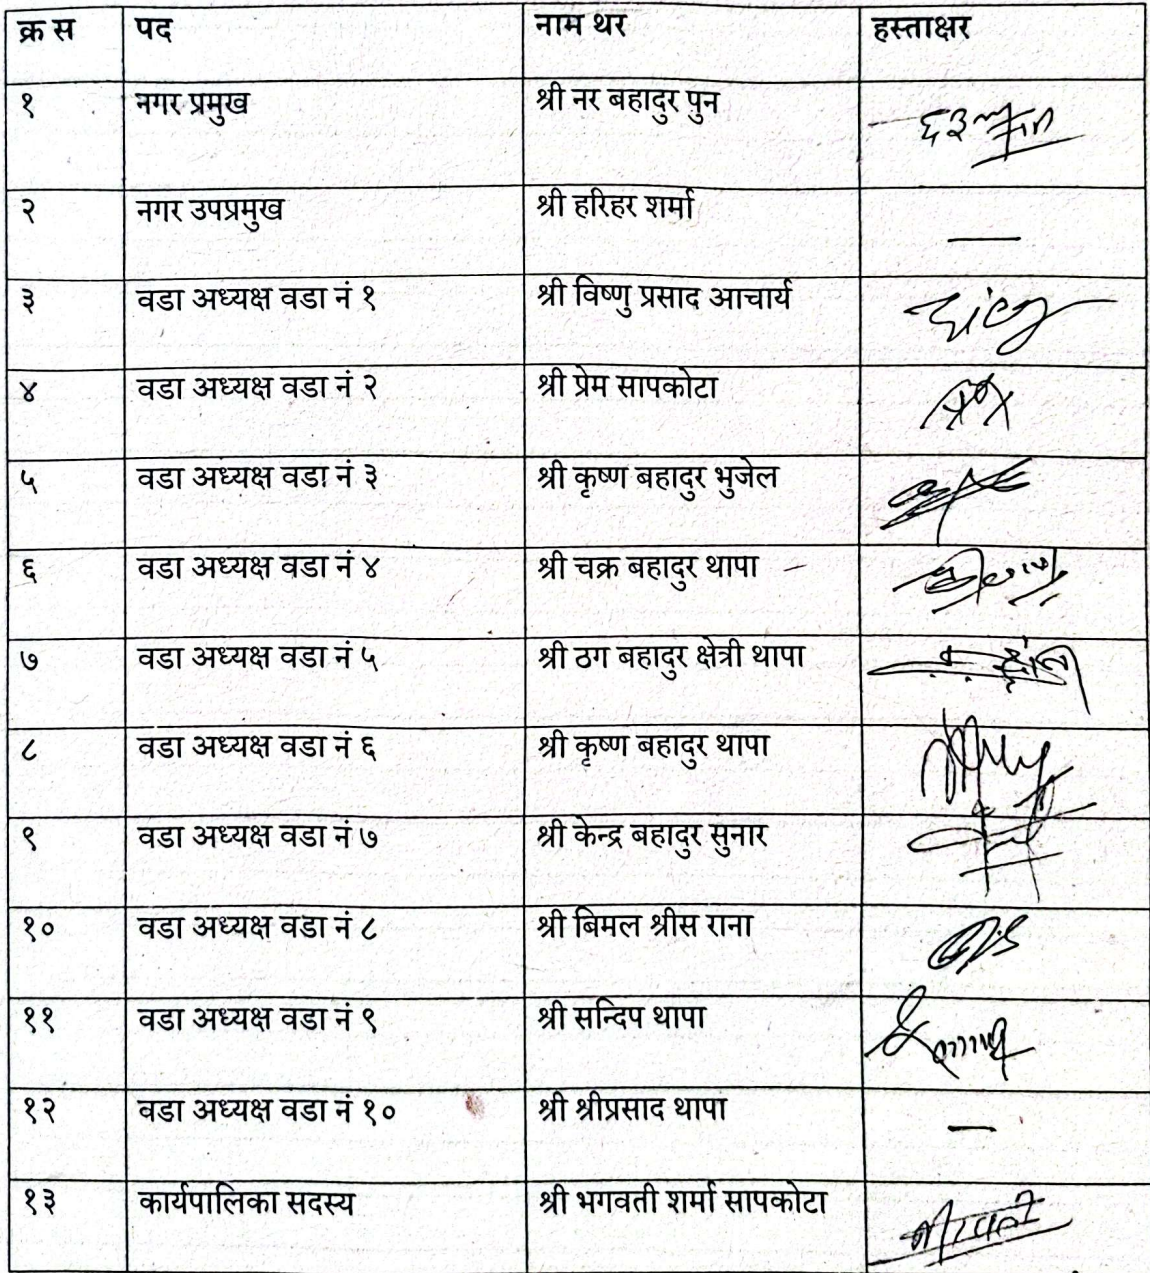 क्र स पद नाम थर हस्ताक्षर
१ नगर प्रमुख श्री नर बहादुर पुन
२ नगर उपप्रमुख श्री हरिहर शर्मा —
३ वडा अध्यक्ष वडा नं १ श्री विष्णु प्रसाद आचार्य
४ वडा अध्यक्ष वडा नं २ श्री प्रेम सापकोटा
५ वडा अध्यक्ष वडा नं ३ श्री कृष्ण बहादुर भुजेल
६ वडा अध्यक्ष वडा नं ४ श्री चक्र बहादुर थापा
७ वडा अध्यक्ष वडा नं ५ श्री ठग बहादुर क्षेत्री थापा
८ वडा अध्यक्ष वडा नं ६ श्री कृष्ण बहादुर थापा
९ वडा अध्यक्ष वडा नं ७ श्री केन्द्र बहादुर सुनार
१० वडा अध्यक्ष वडा नं ८ श्री बिमल श्रीस राना
११ वडा अध्यक्ष वडा नं ९ श्री सन्दिप थापा
१२ वडा अध्यक्ष वडा नं १० श्री श्रीप्रसाद थापा —
१३ कार्यपालिका सदस्य श्री भगवती शर्मा सापकोटा